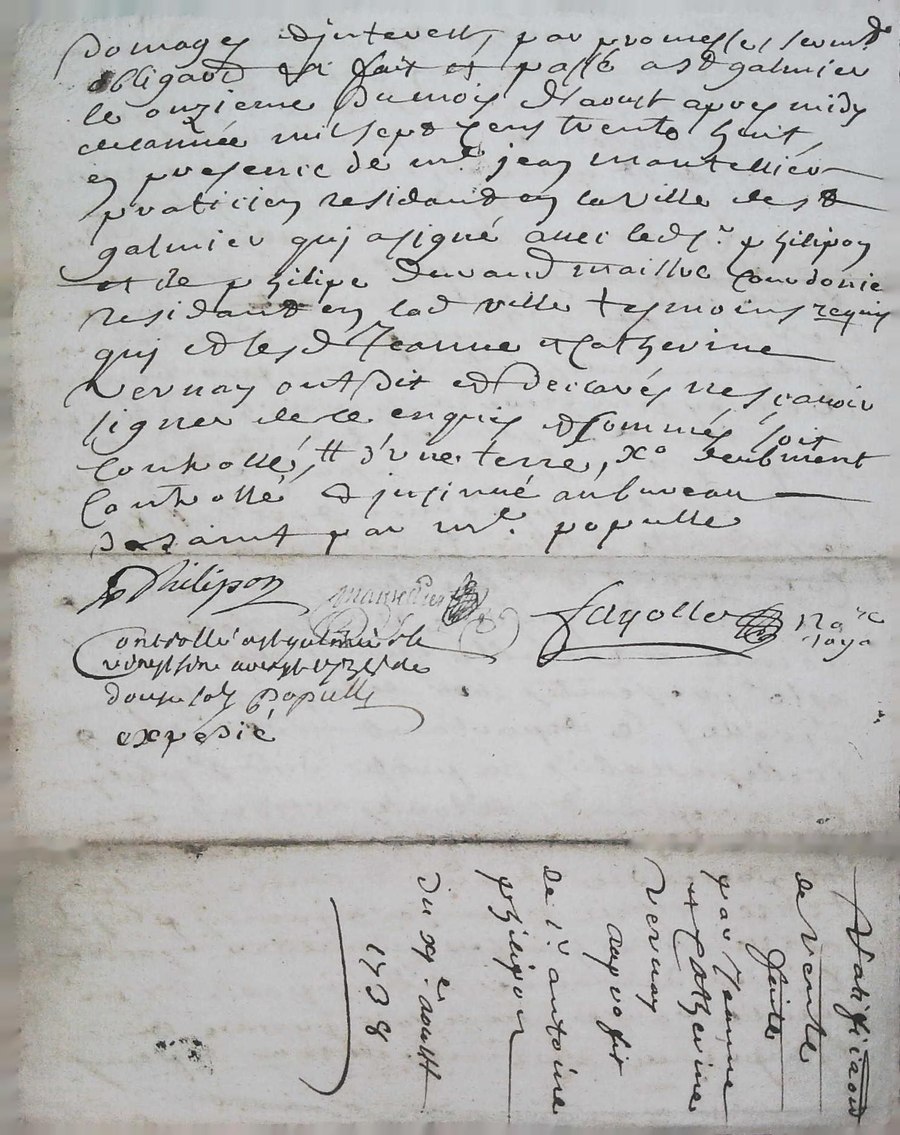 Domages & interests par promesses serm.t
obligaon &c fait et passé a St galmier
le onzieme du mois d'aoust apres midy
de l'année mil sept cens trente huit
en presence de m.e jean mantellier
praticien residant en la ville de St
galmier qui a signé avec led. s.r philipon
et de philipe durand maitre Cordonie
residant en lad ville tesmoins requis
qui et lesd Jeanne et Catherine
vernay ont dit et declarés ne sçavoir
signer de ce enquis & sommés soit
Controllé, # d'une terre, xo seulement
Controllé & jnsinué au bureau
par m.e populle
Philipon mantellier fayolle No.re Roya
Controllé a st galmier le
vingt aoust 1738
douze sols Populle
expedié
Ratificaon
de vente
faitte
par Jeanne
et Catherine
vernay
au profit
de s.r antoine
philipon
du xje aoust
1738